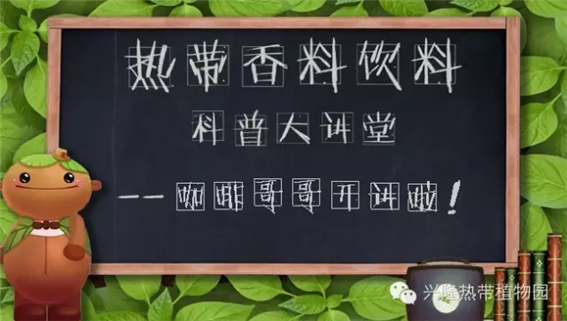 热带香料饮料
科普大讲堂
——咖啡哥哥开讲啦！
兴隆热带植物园